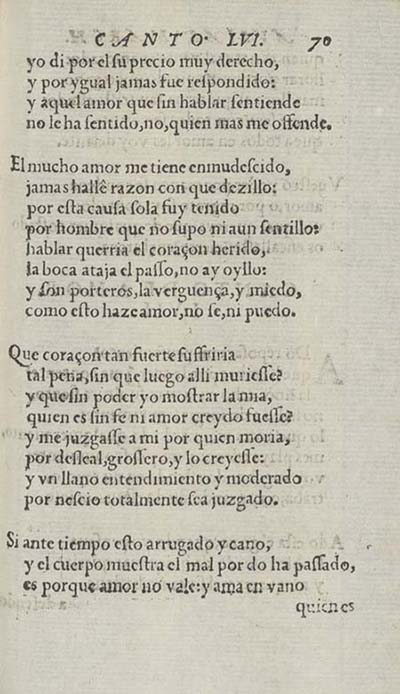 CANTO LVI. 70
yo di por el su precio muy derecho,
y por ygual jamas fue respondido:
y aquel amor que sin hablar sentiende
no le ha sentido, no, quien mas me offende.
El mucho amor me tiene enmudescido,
jamas hallê razon con que dezillo:
por esta causa sola fuy tenido
por hombre que no supo ni aun sentillo:
hablar querria el coraçon herido,
la boca ataja el passo, no ay oyllo:
y son porteros, la verguença, y miedo,
como esto haze amor, no se, ni puedo.
Que coraçon tan fuerte suffriria
tal pena, sin que luego alli muriesse?
y que sin poder yo mostrar la mia,
quien es sin fe ni amor creydo fuesse?
y me juzgasse a mi por quien moria,
por desleal, grossero, y lo creyesse:
y vn llano entendimiento y moderado
por nescio totalmente sea juzgado.
Si ante tiempo esto arrugado y cano,
y el cuerpo muestra el mal por do ha passado,
es porque amor no vale: y ama en vano
quien es